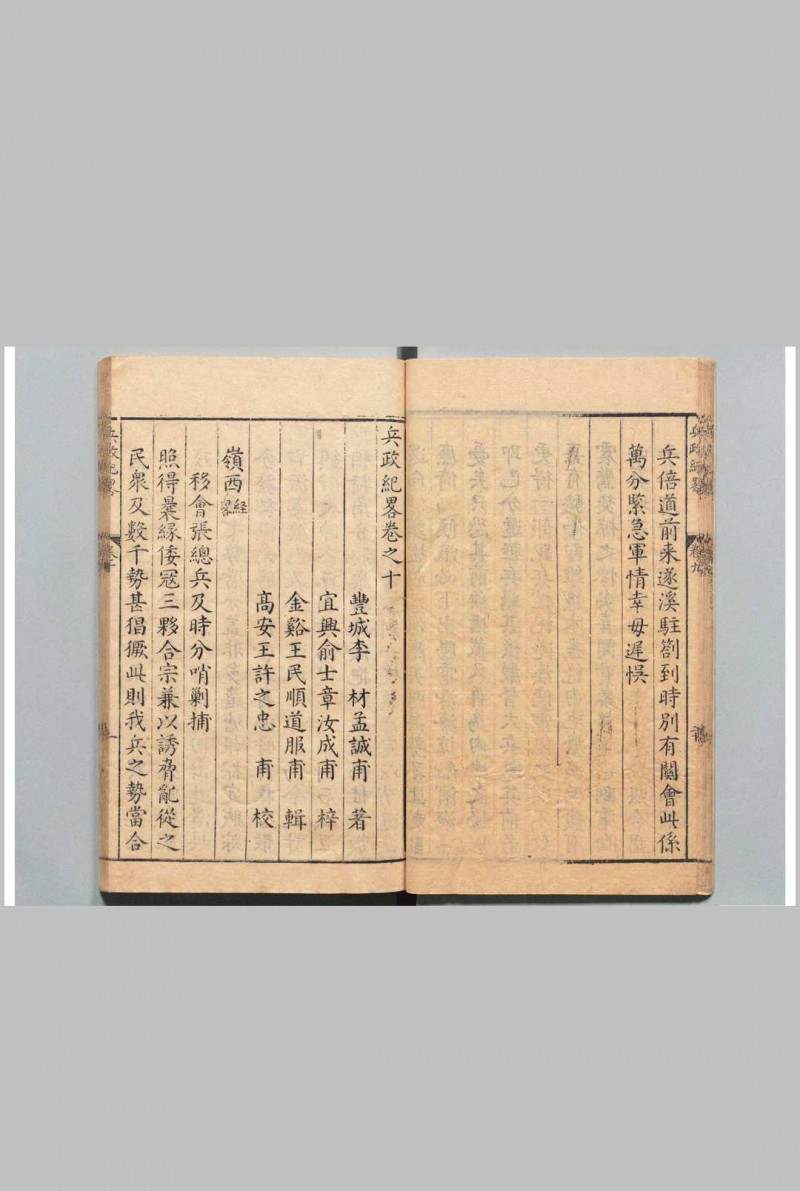 兵倍道前来遂溪駐劄到時別有關會此係
萬分緊急軍情幸毋遲悞
兵政紀畧
卷九
兵政紀畧卷之十
豐城李材孟誠甫著
宜興俞士章汝成甫梓
金谿王民順道服甫輯
高安王許之忠甫校
嶺西經畧
移會張總兵及時分哨剿捕
照得曩緣倭冦三夥合宗兼以誘脅亂從之
民衆及數千勢甚猖獗此則我兵之勢當合
兵政紀畧